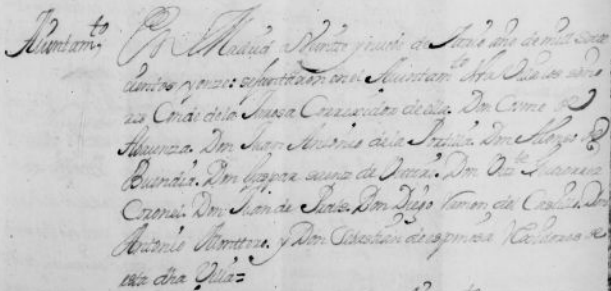 Ayuntam.to En Madrid a Veintte y nueve de Jullio año de mill sette
cientos y onze: se Juntaron en el Ayuntam.to desta Villa los seño
res Conde de la Jarosa Correxidor de ella. Don Cosme de
Abaunza. Don Juan Antonio de la Portilla. Don Alonso de
Buendia. Don Gaspar de Don Vizte Gutierrez
Coronel. Don Juan de Don Diego Ramon del Castillo. Don
Antonio Monttero. y Don Sebastian de espinosa Rexidores de
esta dha Villa=